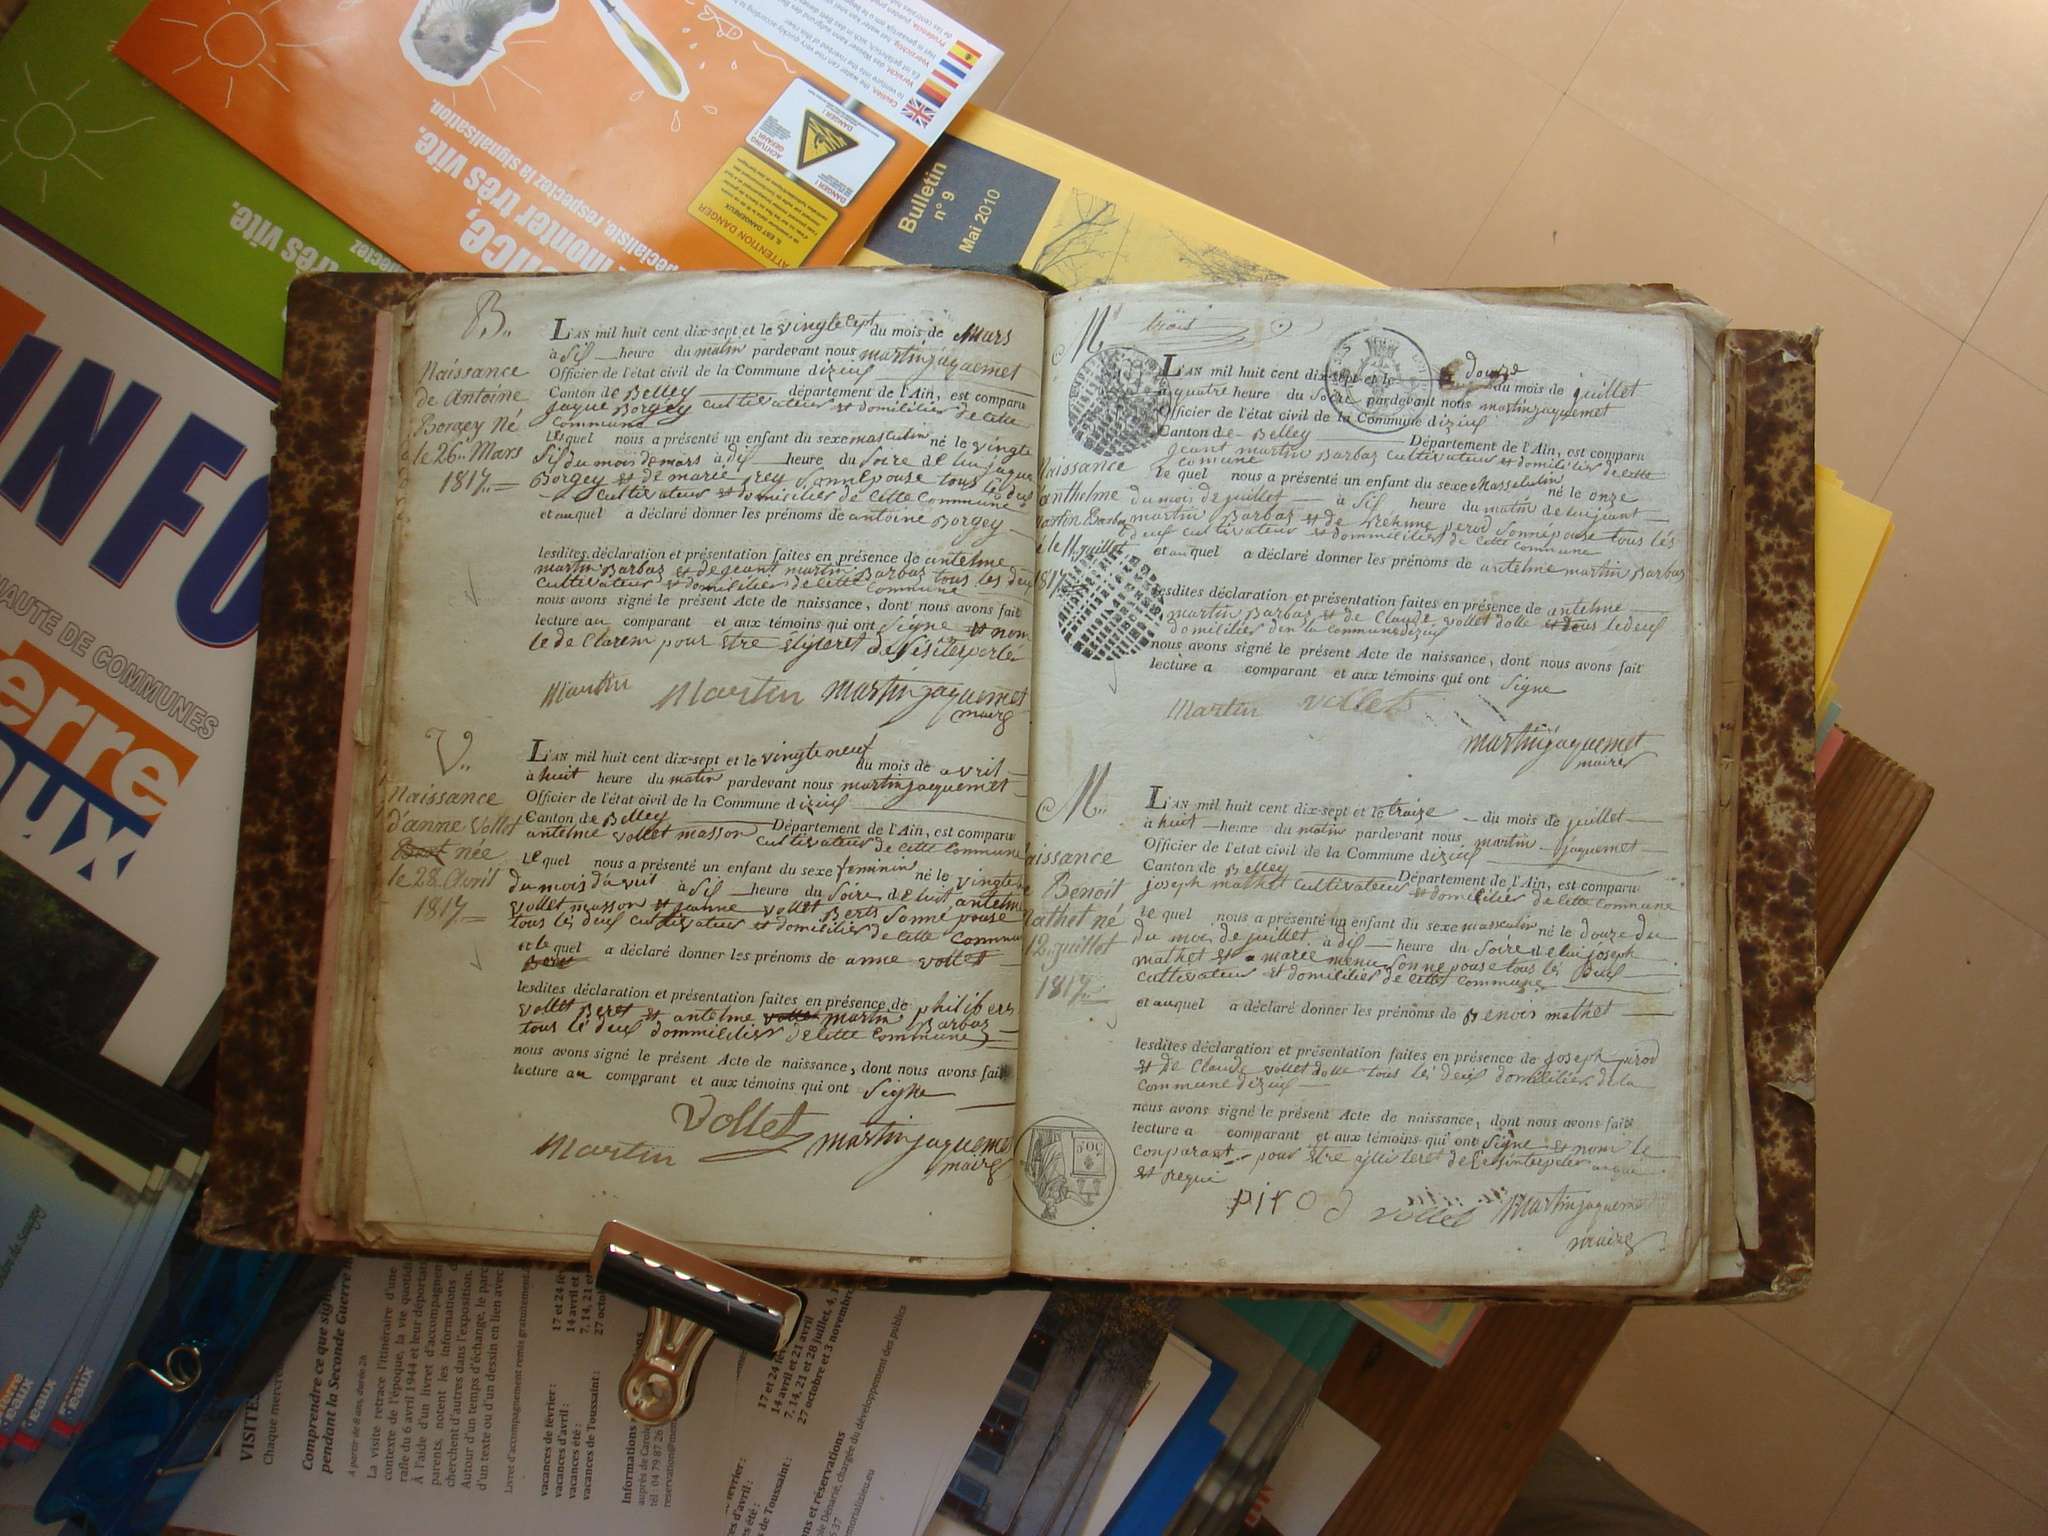 B..
Naissance
de Antoine
Borgey Né
le 26.. Mars
1817..
L'AN mil huit cent dix-sept et le vingte sept du mois de Mars
à Sis heure du matin pardevant nous martin jaquemet
Officier de l'état civil de la Commune dizius
Canton de Belley département de l'Ain, est comparu
jaque Borgey cultivateur et domicilier de cette
commune
Lequel nous a présenté un enfant du sexe masculin né le vingte
Sis du mois de mars à dis heure du Soire de lui jaque
Borgey et de marie rey Sonnépouse tous lé deus
cultivateur et domicilier de cette Commune
et auquel a déclaré donner les prénoms de antoine Borgey
lesdites déclaration et présentation faites en présence de antelme
martin Barbaz et de jeant martin Barbaz tous les deus
cultivateur et domicilier de cette commune
nous avons signé le présent Acte de naissance, dont nous avons fait
lecture au comparant et aux témoins qui ont Signe et nom
le de Claren pour etre
Martin Martin martin jaquemet
maire
V..
Naissance
d'anne Vollet
née
le 28 Avril
1817
L'AN mil huit cent dix-sept et le vingte neuf du mois de avril
à huit heure du matin pardevant nous martin jaquemet
Officier de l'état civil de la Commune dizius
Canton de Belley Département de l'Ain, est comparu
antelme vollet masson cultivateur de cette commune
Le quel nous a présenté un enfant du sexe feminin né le vingte
du mois d'avril à Sis heure du Soire de luit antelme
vollet masson et jeanne vollet Bert Sonné pouse
tous lés deus cultivateur et domicilier de cette commune
et le quel a déclaré donner les prénoms de anne vollet
lesdites déclaration et présentation faites en présence de philibert
vollet Beret et antelme martin Barbaz
tous lé deus dommicilier de cette commune
nous avons signé le présent Acte de naissance, dont nous avons fait
lecture au comparant et aux témoins qui ont Signe
Vollet
Martin martin jaquemet
maire
N° trois
Naissance
anthelme
martin Barbaz
né le 11 juillet
1817
L'AN mil huit cent dix-sept et le douze du mois de juillet
à quatre heure du Soire pardevant nous martin jaquemet
Officier de l'état civil de la Commune dizius
Canton de Belley Département de l'Ain, est comparu
jeant martin Barbaz cultivateur et domicilier de cette
comune
Le quel nous a présenté un enfant du sexe Masseculin né le onze
du mois de juillet à Sis heure du matin de lui jeant
martin Barbaz et de perod Sonnépouse tous lés
deus cultivateur et dommicilier de cette commune
et auquel a déclaré donner les prénoms de antelme martin Barbaz
lesdites déclaration et présentation faites en présence de antelme
martin Barbaz et de Claude vollet dolle et tous le deus
domicilier den la commune dizius
nous avons signé le présent Acte de naissance, dont nous avons fait
lecture a comparant et aux témoins qui ont Signe
martin vollet
martin jaquemet
maire
M..
Naissance
Benoit
mathet né
12 juillet
1817
L'AN mil huit cent dix-sept et le traize du mois de juillet
à huit heure du matin pardevant nous martin jaquemet
Officier de l'état civil de la Commune dizius
Canton de Belley Département de l'Ain, est comparu
joseph mathet cultivateur et domicilier de cette commune
Le quel nous a présenté un enfant du sexe masculin né le douze du
du mois de juillet à dis heure du Soire de lui joseph
mathet et a marie menu Sonnepouse tous lés Deus
cultivateur et domicilier de cette commune
et auquel a déclaré donner les prénoms de Benois mathet
lesdites déclaration et présentation faites en présence de joseph pirod
et de Claude vollet dolle tous lés deus domicilier de la
commune dizius
nous avons signé le présent Acte de naissance, dont nous avons fait
lecture a comparant et aux témoins qui ont Signe et nom le
conparant pour etre
et requi
pirod vollet martin jaquemet
maire
50.C
Bulletin
n° 9
Mai 2010
monter très vite.
respectez la signalisation.
très vite.
ATTENTION DANGER
DANGER !
ACHTUNG
GEFAHR !
INFO
HAUTE DE COMMUNES
erre
aux
VISITES
Chaque mercre
Comprendre ce que signi
pendant la Seconde Guerre
A partir de 8 ans, durée 2h
La visite retrace l'itinéraire d'une
contexte de l'époque, la vie quotid
rafle du 6 avril 1944 et leur déportat
À l'aide d'un livret d'accompagnem
parents, notent les informations d
cherchent d'autres dans l'exposition.
Autour d'un temps d'échange, le parc
d'un texte ou d'un dessin en lien avec
Livret d'accompagnement remis gratuitement
vacances de février :
vacances d'avril :
vacances été :
vacances de Toussaint :
17 et 24 fé
14 avril et
7, 14, 21 et
27 octob
Informations
auprès de Carol
tél 04 79 87 26
17 et 24 fév
14 avril et 21 avril
7, 14, 21 et 28 juillet, 4,
27 octobre et 3 novembre
chargée du développement des publics